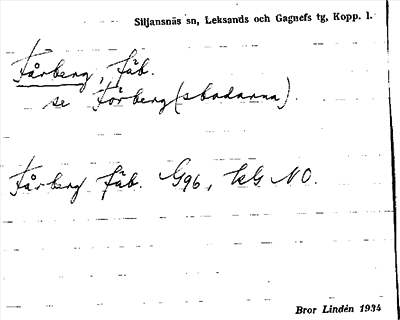 Siljansnäs sn, Leksands och Gagnefs tg, Kopp. l.
Fårberg, fäb.
se Förberg(sbodarna).
Fårberg fäb. G96, kG NO.
Bror Lindén 1934